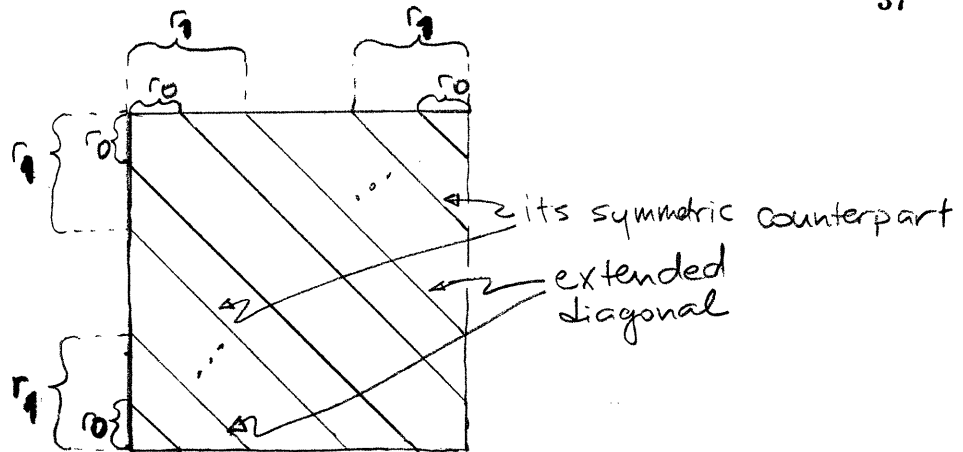 37
r1
r1
r0
r0
r0
r1
its symmetric counterpart
extended
diagonal
r1
r0